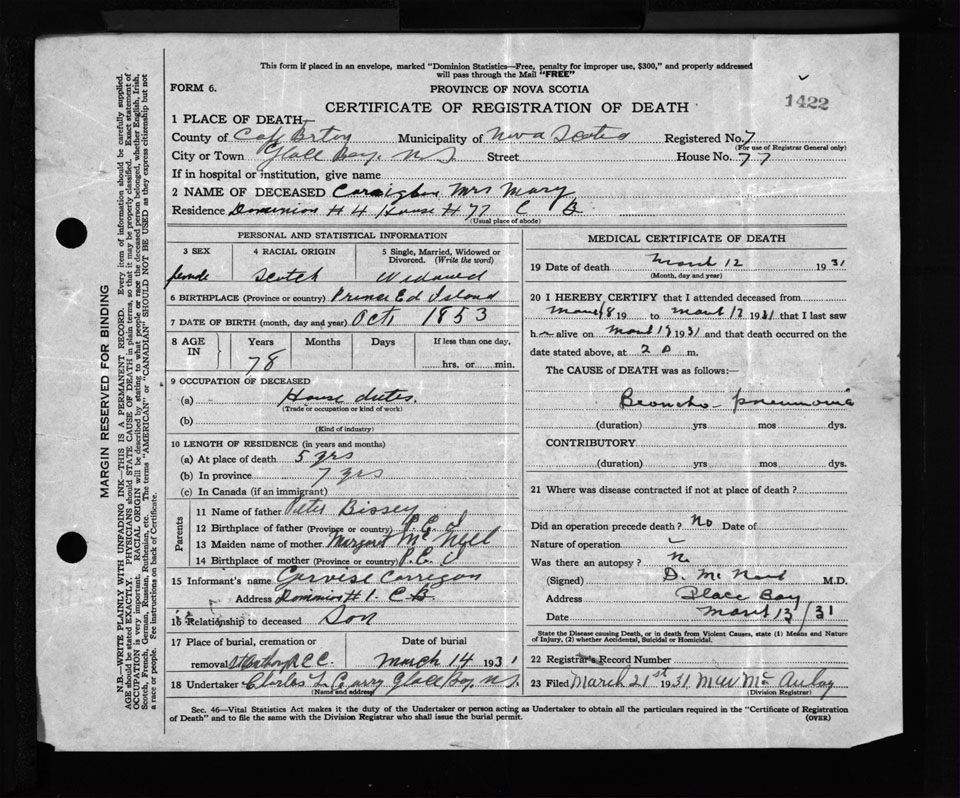 This form if placed in an envelope, marked "Dominion Statistics—Free, penalty for improper use, $300," and properly addressed
will pass through the Mail "FREE"
FORM 6.
PROVINCE OF NOVA SCOTIA
CERTIFICATE OF REGISTRATION OF DEATH
1422
1 PLACE OF DEATH—
County of Cap Brton Municipality of Nova Scotia Registered No. 7
(For use of Registrar General only)
City or Town Glace Bay, N.S. Street House No. 77
If in hospital or institution, give name
2 NAME OF DECEASED Mrs Mary
Residence Dominion # 4 House # 77 C B
(Usual place of abode)
PERSONAL AND STATISTICAL INFORMATION
3 SEX 4 RACIAL ORIGIN 5 Single, Married, Widowed or Divorced. (Write the word)
female Scotch Widowed
6 BIRTHPLACE (Province or country) Prince Ed Island
7 DATE OF BIRTH (month, day and year) Oct, 1853
8 AGE IN Years Months Days If less than one day,
78 hrs. or min.
9 OCCUPATION OF DECEASED
(a) House duties.
(Trade or occupation or kind of work)
(b)
(Kind of industry)
10 LENGTH OF RESIDENCE (in years and months)
(a) At place of death 5 yrs
(b) In province 7 yrs
(c) In Canada (if an immigrant)
Parents
11 Name of father Peter Bissey
12 Birthplace of father (Province or country) P.E.I
13 Maiden name of mother Margaret Mc Neil
14 Birthplace of mother (Province or country) P.E.I
15 Informant's name Gervese Corrigan
Address Dominion # 1. C B.
16 Relationship to deceased Son
17 Place of burial, cremation or Date of burial
removal R.C.C. March 14 1931
18 Undertaker Charles L Curry Glace Bay, N.S.
(Name and address)
MEDICAL CERTIFICATE OF DEATH
19 Date of death March 12 1931
(Month, day and year)
20 I HEREBY CERTIFY that I attended deceased from
March 8 19 to March 12 1931 that I last saw
h alive on March 1931 and that death occurred on
date stated above, at 2 P m.
The CAUSE of DEATH was as follows:—
Broncho pneumonia
(duration) yrs mos dys.
CONTRIBUTORY
(duration) yrs mos dys.
21 Where was disease contracted if not at place of death?
Did an operation precede death? No Date of
Nature of operation
Was there an autopsy? N
(Signed) D. M. D.
Address Glace Bay
Date March 13/31
State the Disease causing Death, or in death from Violent Causes, state (1) Means and Nature
of Injury, (2) whether Accidental, Suicidal or Homicidal.
22 Registrar's Record Number
23 Filed March 21st 1931. Mc Aulay
(Division Registrar)
Sec. 46—Vital Statistics Act makes it the duty of the Undertaker or person acting as Undertaker to obtain all the particulars required in the "Certificate of Registration
of Death" and to file the same with the Division Registrar who shall issue the burial permit.
(OVER)
MARGIN RESERVED FOR BINDING
N.B.—WRITE PLAINLY WITH UNFADING INK—THIS IS A PERMANENT RECORD. Every item of information should be carefully supplied.
AGE should be stated EXACTLY. PHYSICIANS should STATE CAUSE OF DEATH in plain terms, so that it may be properly classified. Exact statement of
OCCUPATION is very important. RACIAL ORIGIN will be described by stating to what people or race the deceased person belonged, whether English, Irish,
Scotch, French, German, Russian, Ruthenian, etc. The terms "AMERICAN" or "CANADIAN" SHOULD NOT BE USED as they express citizenship but not
a race or people. See instructions on back of Certificate.